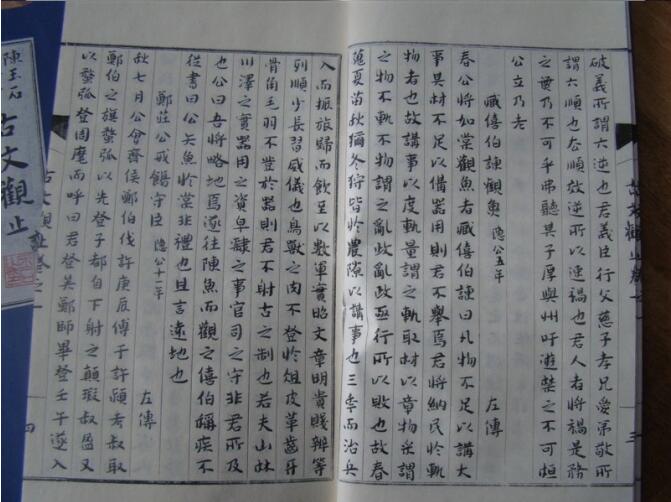 破義所謂六逆也君義臣行父慈子孝兄愛弟敬所
謂六順也去順效逆所以速禍也君人者將禍是務
之乃不可乎弗聽其子厚與州吁遊禁之不可桓
公立乃老
臧僖伯諫觀魚 隱公五年 左傳
春公將如棠觀魚者臧僖伯諫曰凡物不足以講大
事其材不足以備器用則君不舉焉君將納民於軌
物者也故講事以度軌量謂之軌取材以章物采謂
之物不軌不物謂之亂政亂政亟行所以敗也故春
蒐夏苗秋獮冬狩皆於農隙以講事也三年而治兵
三
入而振旅歸而飲至以數軍實昭文章明貴賤辨等
列順少長習威儀也鳥獸之肉不登於俎皮革齒牙
骨角毛羽不登於器則君不射古之制也若夫山林
川澤之實器用之資皁隸之事官司之守非君所及
也公曰吾將略地焉遂往陳魚而觀之僖伯稱疾不
從書曰公矢魚於棠非禮也且言遠地也
鄭莊公戒飭守臣 隱公十一年 左傳
秋七月公會齊侯鄭伯伐許庚辰傅于許潁考叔取
鄭伯之旗蝥弧以先登子都自下射之顛瑕叔盈又
以蝥弧登周麾而呼曰君登矣鄭師畢登壬午遂入
古文觀止卷之一 四
陳玉石 古文觀止